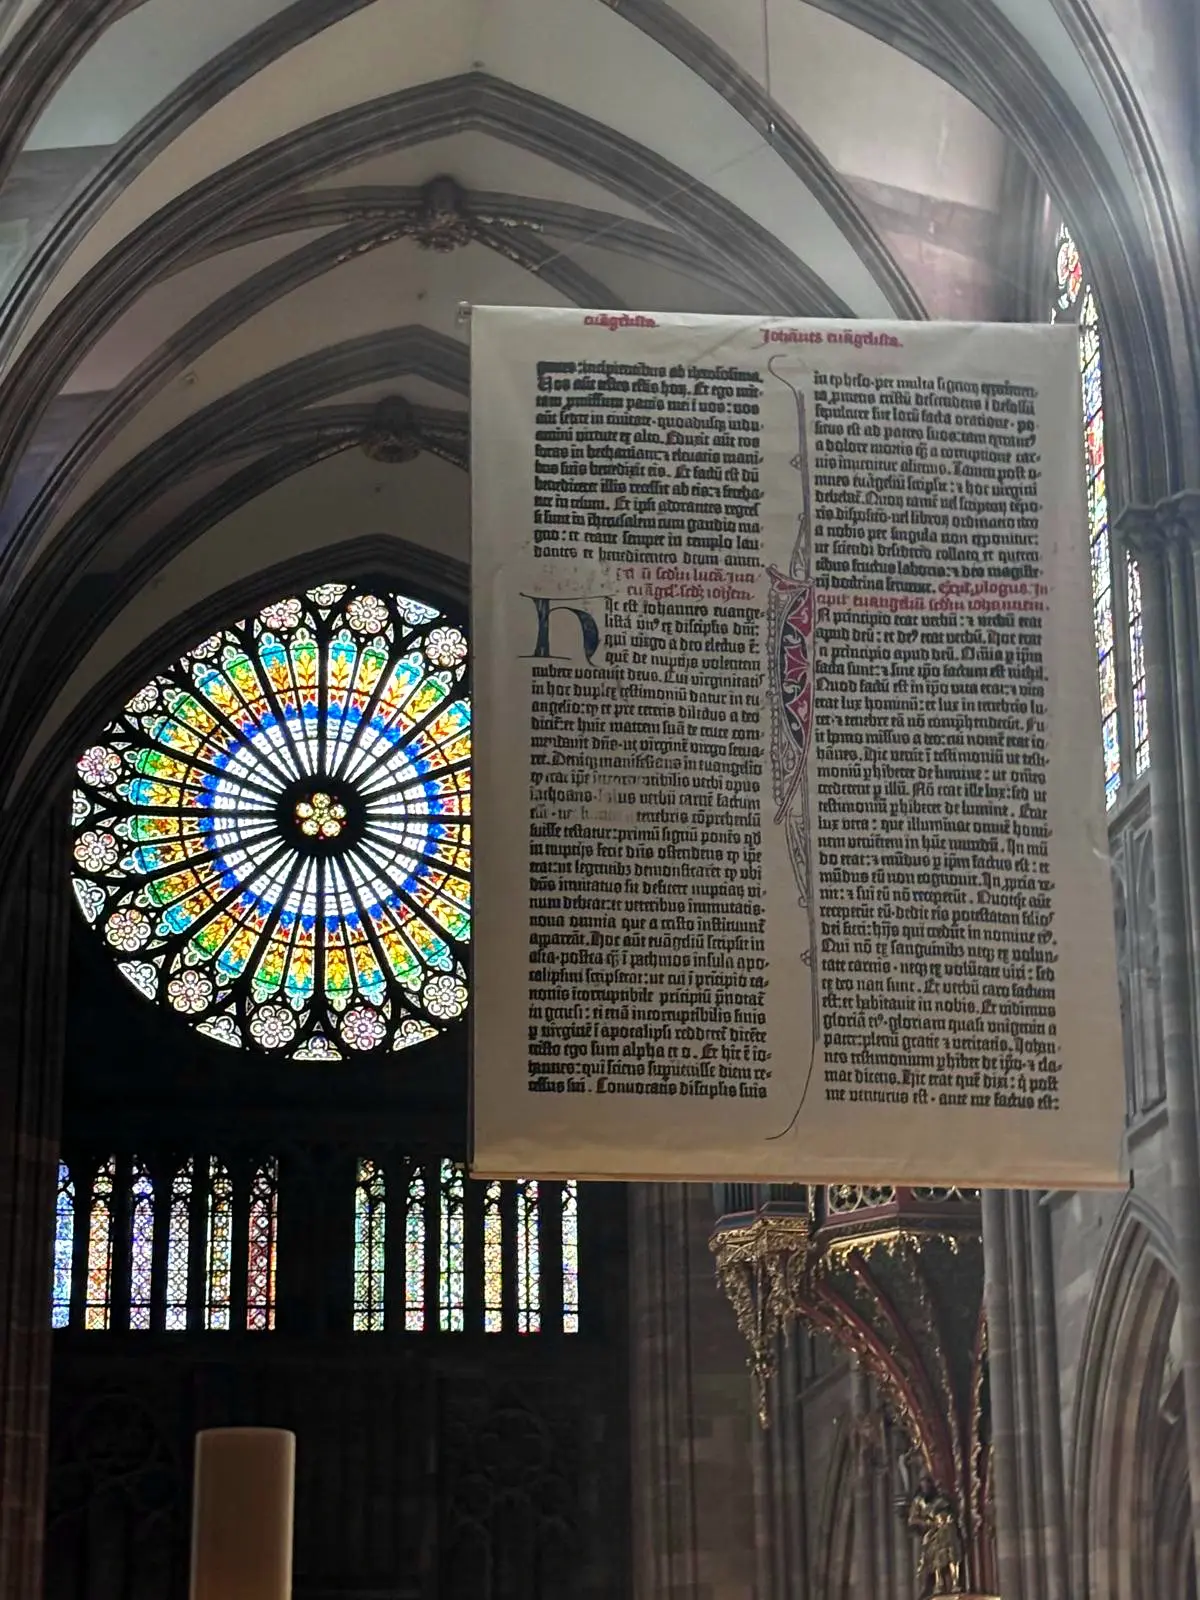 euãgelista.
Johãnes euãgelista.
gentes: incipientibus ab iherosolima.
Vos aũt testes estis horꝝ. Et ego mit-
tam ꝓmissum patris mei ĩ vos: vos
aũt sedete in civitate· quoadusqꝫ indu-
amini virtute ex alto. Eduxit aũt eos
foras in bethaniam: ⁊ elevatis mani-
bus suis benedixit eis. Et factũ est dũ
benediceret illis recessit ab eis: ⁊ fereba-
tur in celum. Et ipsi adorantes regres-
si sunt in iherusalem cum gaudio ma-
gno: et erant semper in templo lau-
dantes et benedicentes deum amen.
sedm lucã. 
euãgeľ. scdꝫ iohem.
Hic est iohannes euange-
lista unꝰ ex discipulis dñi:
qui virgo a deo electus ẽ:
quẽ de nuptijs volentem
nubere vocavit deus. Cui virginitatꝭ
in hoc duplex testimoniũ datur in eu-
angelio: ꝙ et pre ceteris dilectus a deo
dicitur: et huic matrem suã de cruce com-
mendavit dñs· ut virginẽ virgo serva-
ret. Deniqꝫ manifestans in euangelio
ꝙ erat ip̃e incorruptibilis verbi opus
inchoans· solus verbũ carnẽ factum
esse· nec lumen a tenebris cõprehensũ
fuisse testatur: primũ signũ ponẽs qd
in nuptijs fecit dñs ostendens ꝙ ip̃e
erat: ut legentibꝫ demonstraret ꝙ ubi
dñs invitatus sit deficere nuptiarꝝ vi-
num debeat: et veteribus immutatis·
nova omnia que a cristo instituunť
appareãt. Hoc aũt euãgeliũ scripsit in
asia· postea q̃ ĩ pathmos insula apo-
calipsim scripserat: ut cui ĩ pricipio ca-
nonis incorruptibile pricipiũ p̃notať
in genesi: ei etiã incorruptibilis finis
ꝑ virginẽ ĩ apocalipsi redderet̃ dicẽte
cristo ego sum alpha et o. Et hic ẽ io-
hannes: qui sciens supvenisse diem re-
cessus sui. Convocatis discipulis suis
in epheso· per multa signorꝝ experimen-
ta ꝓmens cristũ descendens ĩ defossũ
sepulture sue locũ facta oratione· po-
situs est ad patres suos: tam extraneꝰ
a dolore mortis q̃ a corruptione car-
nis invenitur alienus. Tamen post o-
mnes euãgeliũ scripsit: ⁊ hoc virgini
debebať. Quorꝝ tamẽ vel scriptorꝝ tẽpo-
ris dispositio· vel librorꝝ ordinatio ideo
a nobis per singula non exponitur:
ut sciendi desiderio collato et queren-
tibus fructus laboris: ⁊ deo magiste-
rij doctrina servetur. Explꝭ ꝓlogus. In-
cipit euangeliũ scdm iohannem.
In principio erat verbũ: ⁊ verbũ erat
apud deũ: et deꝰ erat verbũ. Hoc erat
in principio apud deũ. Om̃ia ꝑ ip̃m
facta sunt: ⁊ sine ip̃o factum est nichil.
Quod factũ est in ip̃o vita erat: ⁊ vita
erat lux hominũ: et lux in tenebris lu-
cet· ⁊ tenebre eã nõ cõprehenderũt. Fu-
it homo missus a deo: cui nomẽ erat io-
hãnes. Hic venit ĩ testimoniũ ut testi-
moniũ ꝑhiberet de lumine: ut om̃es
crederent ꝑ illũ. Nõ erat ille lux: sed ut
testimoniũ ꝑhiberet de lumine. Erat
lux vera: que illuminat omnẽ homi-
nem venientem in hũc mundũ. In mũ-
do erat: ⁊ mũdus ꝑ ip̃m factus est: et
mũdus eũ non cognovit. In ꝓpria ve-
nit: ⁊ sui eũ nõ receperũt. Quotqͦt aũt
receperũt eũ· dedit eis potestatem filios
dei fieri: hijs qui credũt in nomine eiꝰ.
Qui nõ ex sanguinibꝫ neqꝫ ex volun-
tate carnis· neqꝫ ex volũtate viri: sed
ex deo nati sunt. Et verbũ caro factum
est: et habitavit in nobis. Et vidimus
gloriã eiꝰ· gloriam quasi unigeniti a
patre: plenũ gratie ⁊ veritatis. Johan-
nes testimonium ꝑhibet de ip̃o· ⁊ cla-
mat dicens. Hic erat quẽ dixi: q̇ post
me venturus est· ante me factus est: